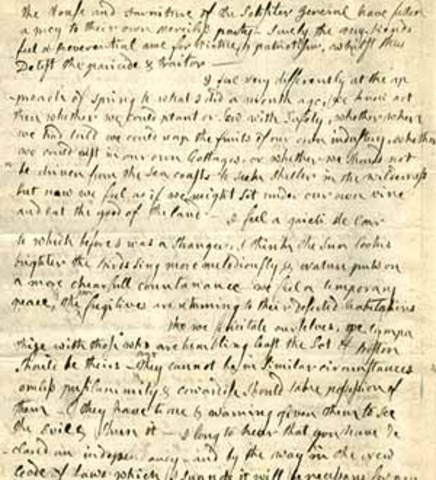 The House and furniture of the Solisiter General have fallen
a prey to their own merciless party — Surely the very Fiends
feel a Reverential awe for Virtue & patriotism, whilst they
Detest the paricide & traitor —
I feel very differently at the ap
proach of spring to what I did a month ago. we knew not
then whether we could plant or sow with safety, whether when
we had toild we could reap the fruits of our own industery, whether
we could rest in our own Cottages, or whether we should not
be driven from the sea coasts to seek shelter in the wilderness
but now we feel as if we might sit under our own vine
and eat the good of the land — I feel a gaieti de Coar
to which before I was a stranger. I think the Sun looks
brighter the Birds sing more melodiously & Nature puts on
a more chearfull countanance. we feel a temporary
peace, & the fugitives are returning to their deserted habitations
Tho we felicitate ourselves, we sympa
thize with those who are trembling least the Lot of Boston
should be theirs — they cannot be in similar circumstances
unless pusilanimity & cowardise should take possession of
them — they have time & warning given them to see
the Evil & shun it — I long to hear that you have de
clared an independancy — and by the way in the new
Code of Laws which I suppose it will be necessary for you